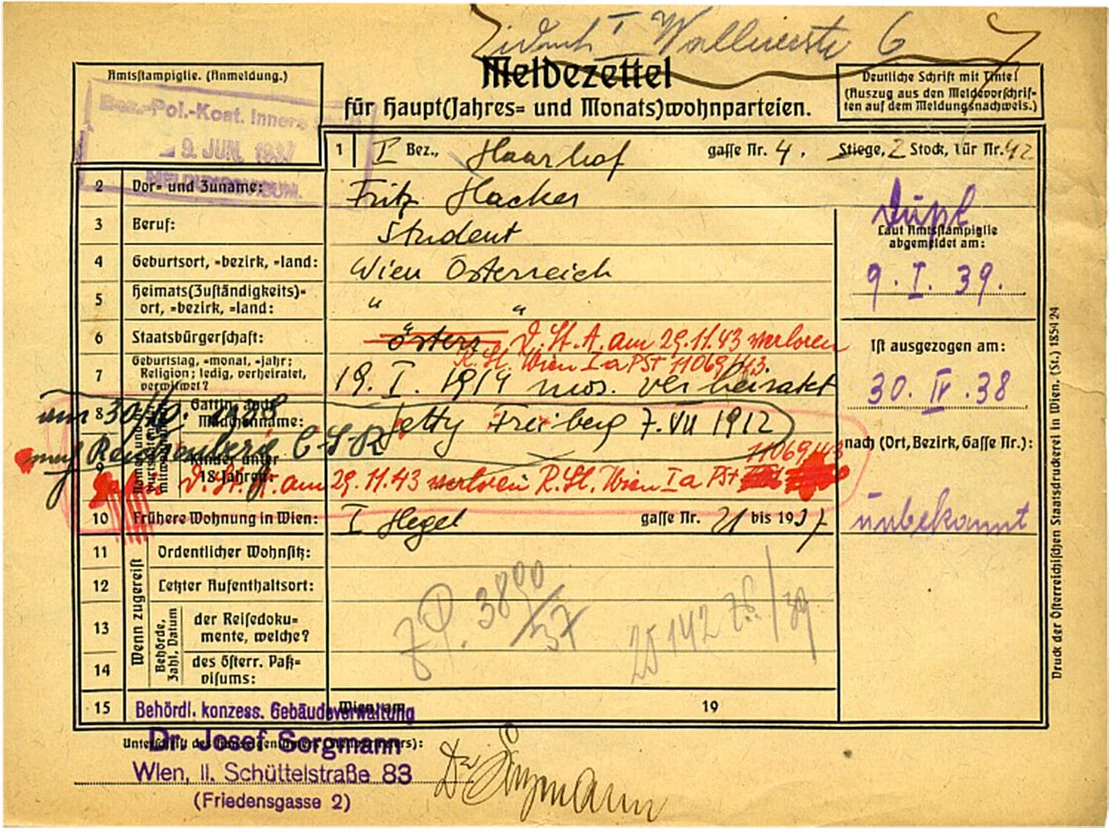 I Wallnerstr 6
Meldezettel
für Haupt(Jahres= und Monats)wohnparteien.
Amtsstampiglie. (Anmeldung.)
Bez.-Pol.-Koat. Innere
- 9. JUN. 1937
Deutliche Schrift mit Tinte!
(Auszug aus den Meldevorschrif-
ten auf dem Meldungsnachweis.)
1 I Bez., Haarhof gasse Nr. 4. Stiege, 2 Stock, Tür Nr. 42
2 Vor- und Zuname: Fritz Hacker
3 Beruf: Student
4 Geburtsort, =bezirk, =land: Wien Österreich
5 Heimats(Zuständigkeits)-
ort, =bezirk, =land: " "
6 Staatsbürgerschaft: österr. D. St. A. am 29.11.43 verloren
R. St. Wien I a PSt 11069/43
7 Geburtstag, =monat, =jahr;
Religion; ledig, verheiratet,
verwitwet? 19. I. 1914 mos. verheiratet
8 Mädchenname: Jetty Freiberg 7. VII 1912
am 30/10. 1938
nach Reichenberg C.S.R
9 Kinder unter
18 Jahren:
11069/43
D. St. A. am 29.11.43 verloren R. St. Wien I a PSt
10 Frühere Wohnung in Wien: I Hegel gasse Nr. 21 bis 1937
Wenn zugereist
11 Ordentlicher Wohnsitz:
12 Letzter Aufenthaltsort:
Behörde,
Zahl, Datum
13 der Reisedoku-
mente, welche?
14 des österr. Paß-
visums:
3890/37
25142 /39
15 Wien, am 19
Dupl
Laut Amtsstampiglie
abgemeldet am:
9. I. 39.
Ist ausgezogen am:
30. IV. 38
nach (Ort, Bezirk, Gasse Nr.):
unbekannt
Druck der Österreichischen Staatsdruckerei in Wien. (St.) 1854 24
Behördl. konzess. Gebäudeverwaltung
Dr. Josef Sorgmann
Wien, II. Schüttelstraße 83
(Friedensgasse 2)
Dr Sorgmann